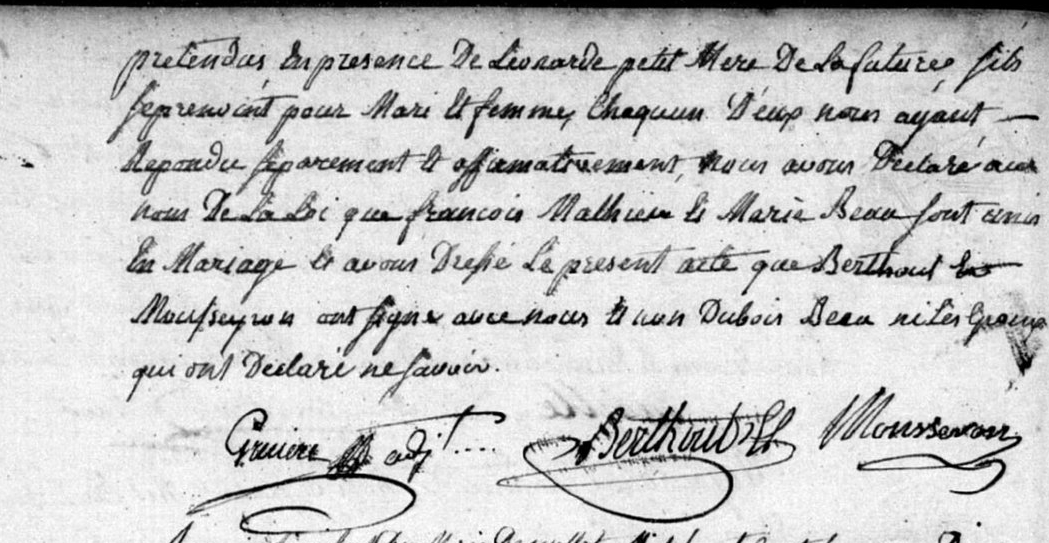 pretendus En presence De Léonarde petit Mere De La future, sils
se prenoint pour Mari Et femme, Chaquun D'eux nous ayant —
Repondu séparement Et affirmativement, Nous avons Déclaré au
nom De La Loi que francois Mathieu Et Marie Beau sont unis
En Mariage Et avons Dressé Le present acte que Berthout Et
Mousseyron ont signé avec nous Et non Dubois Beau ni Les Epoux
qui ont Declaré ne savoir.
adjt Berthout Mousseron